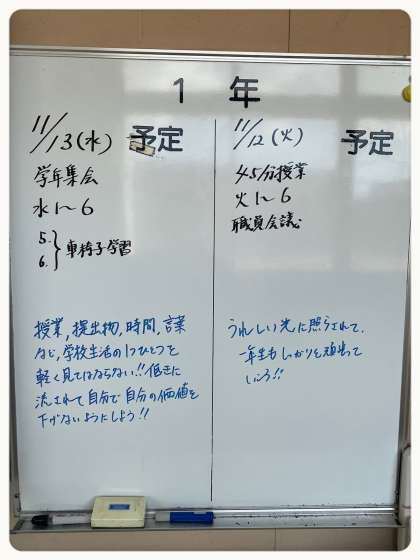 1 年
11/13(水) 予定
学年集会
水1〜6
5.
6.
}車椅子学習
授業,提出物,時間,言葉
など,学校生活の1つひとつを
軽く見てはならない!!低きに
流されて自分で自分の価値を
下げないようにしよう!!
11/12(火) 予定
45分授業
火1〜6
職員会議
うれしい光に照らされて、
一年生もしっかりと頑張って
いこう!!